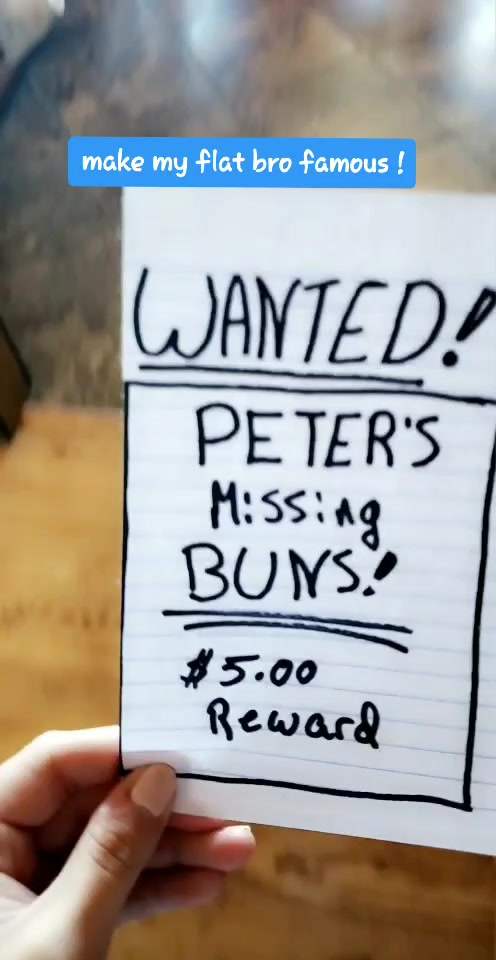 make my flat bro famous !
WANTED!
PETER'S
Missing
BUNS!
$5.00
Reward